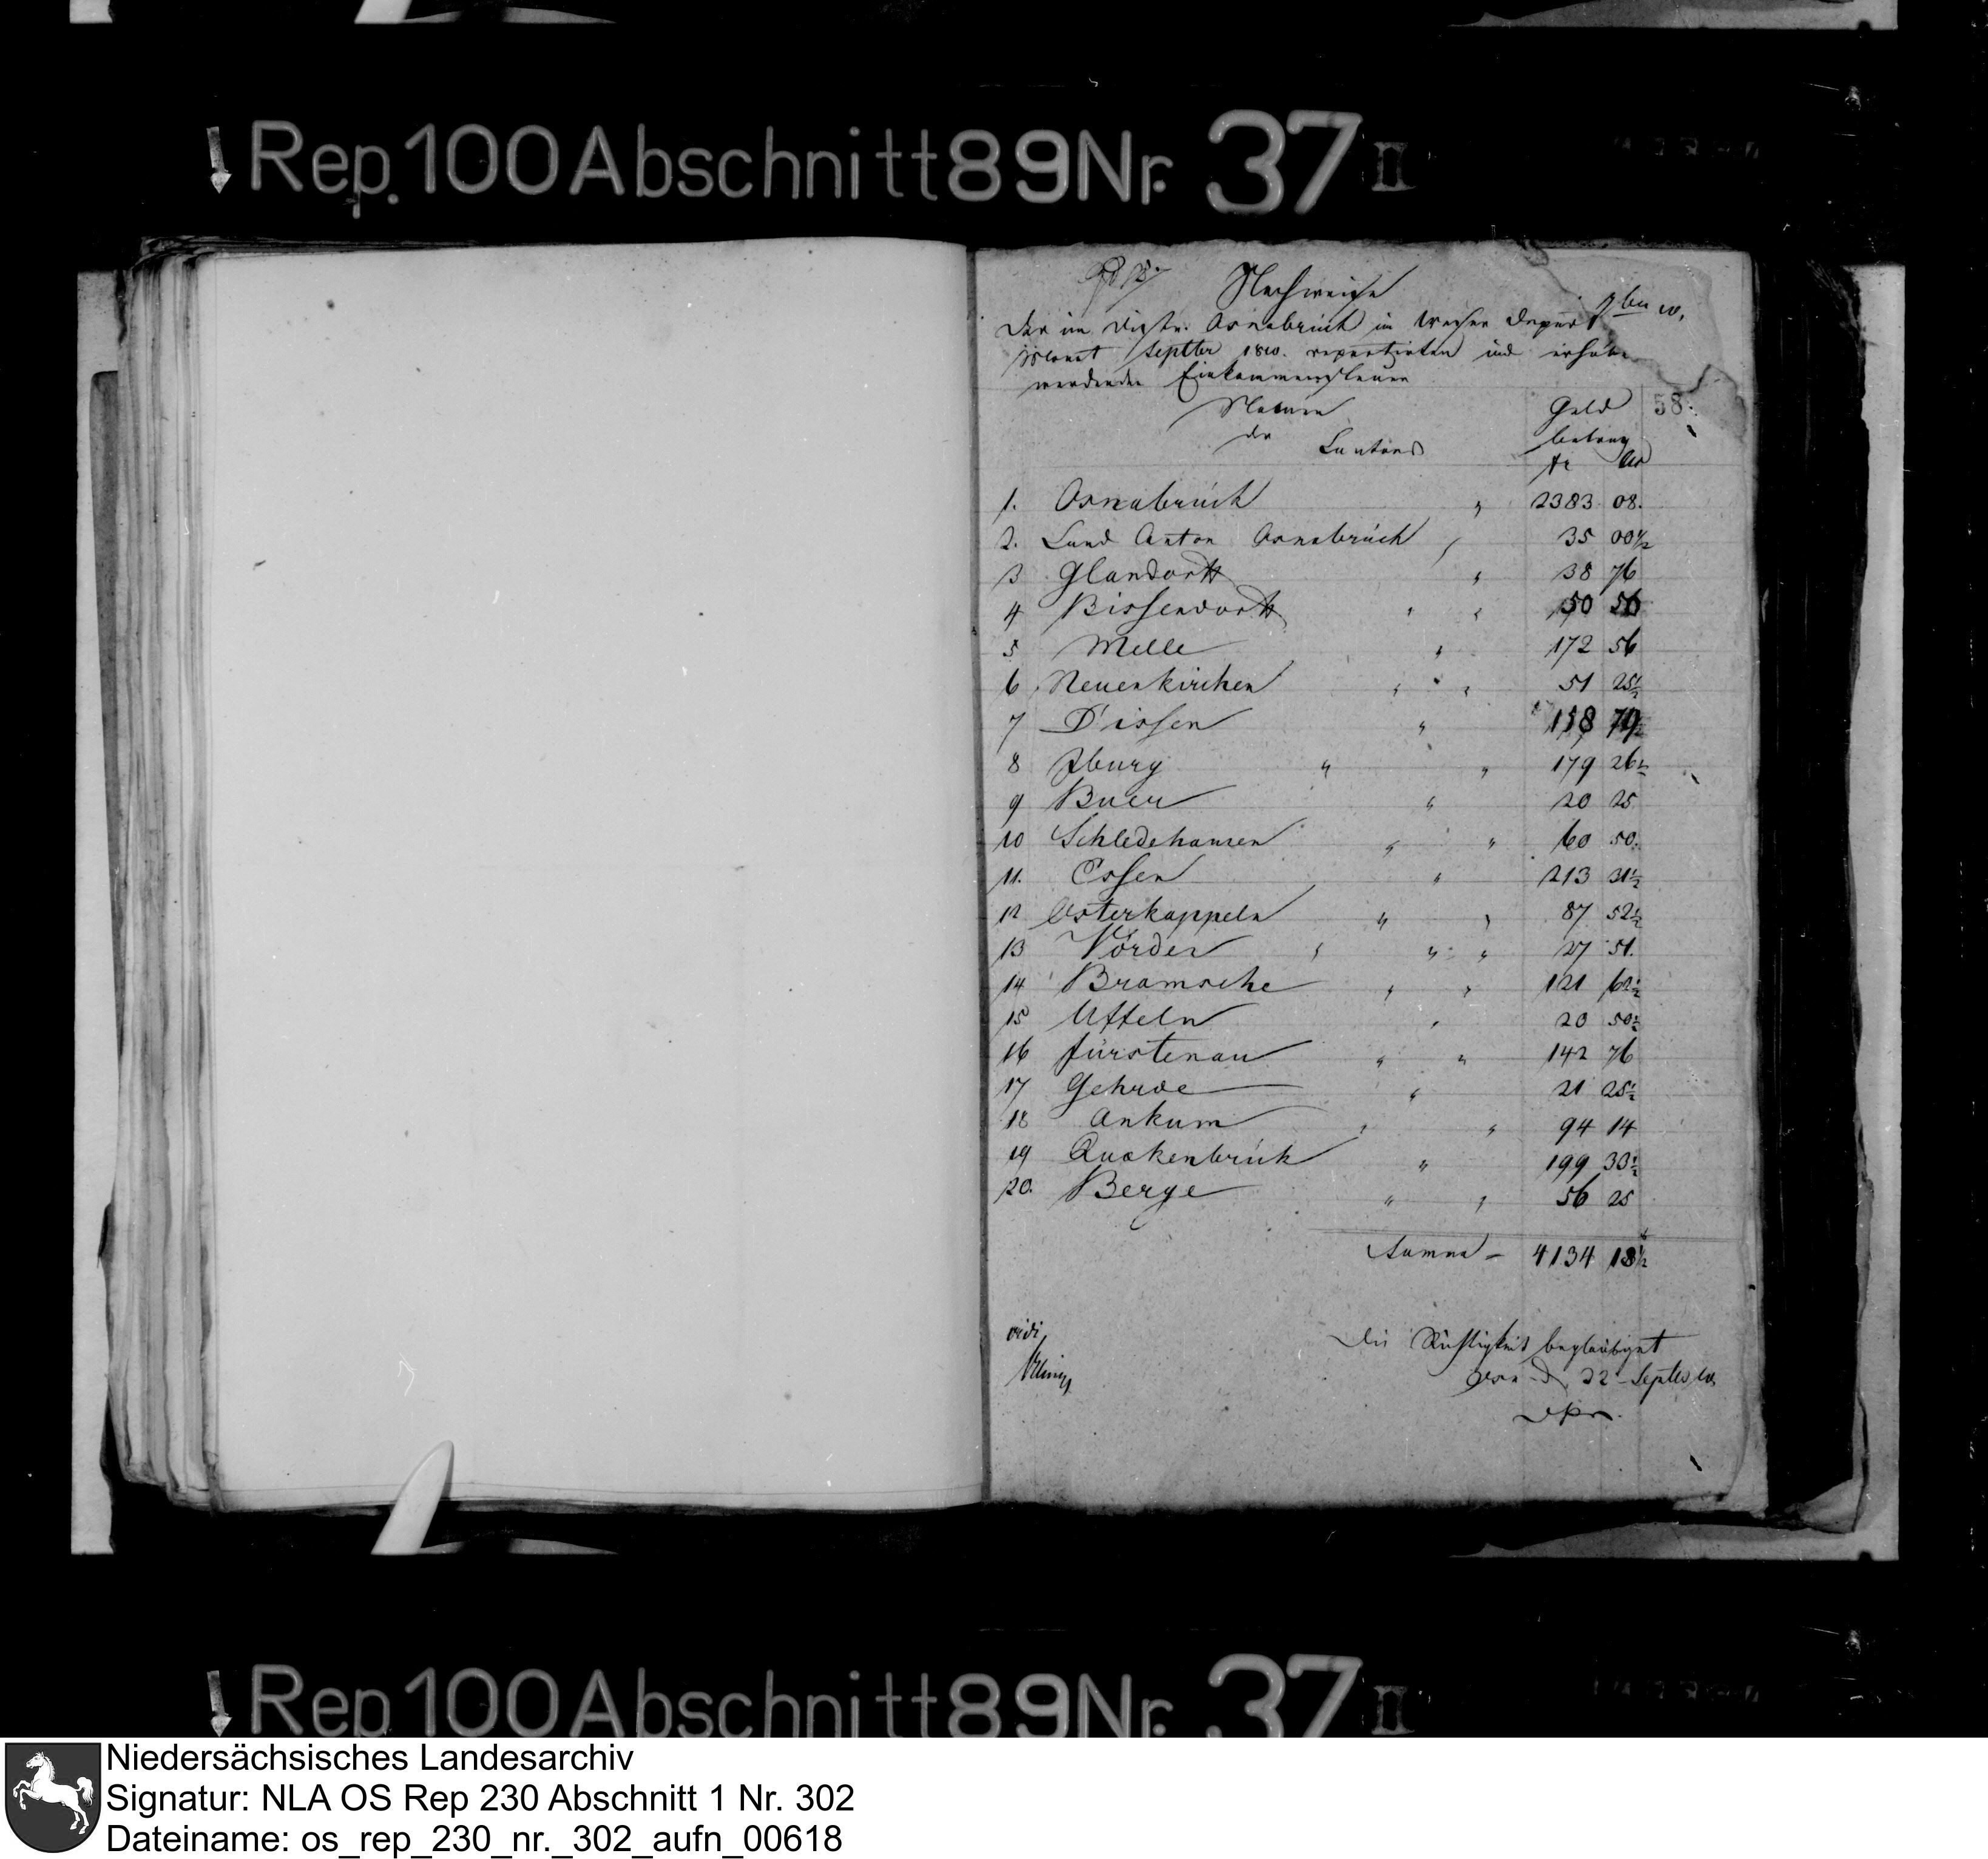 Rep. 100 Abschnitt 89 Nr. 37 II
Nachweise
der im Distr. Osnabrück im Weser Depart
Monat Septbr 1810. repartirten und erhoben
werdenden Einkommensteuer
58.
Namen Geld
der Cantons betrag
fr Cts
1. Osnabrück " 2383 08.
2. Land Canton Osnabrück " 35 00½
3 Glandorff " 38 76
4 Bissendorff " " 50 56
5 Melle " 172 56
6 Neuenkirchen " " " 51 25½
7 Dissen " 158
8 Iburg " " 179 26½
9 Buer " 20 25
10 Schledehausen " " 60 50.
11. Essen " 213 31½
12 Osterkappeln " " 87 52½
13 Vörden " " " 27 51.
14 Bramsche " " 121 62½
15 Uffeln " 20 50½
16 fürstenau " " 142 76
17 Gehrde " 21 25½
18 Ankum " " 94 14
19 Quakenbrück " 199 33½
20. Berge " " 56 25
Summa – 4134 18½
vidi
Die Richtigkeit beglaubigt
d. 22 Septbr 10.
Rep 100 Abschnitt 89 Nr. 37 II
Niedersächsisches Landesarchiv
Signatur: NLA OS Rep 230 Abschnitt 1 Nr. 302
Dateiname: os_rep_230_nr._302_aufn_00618